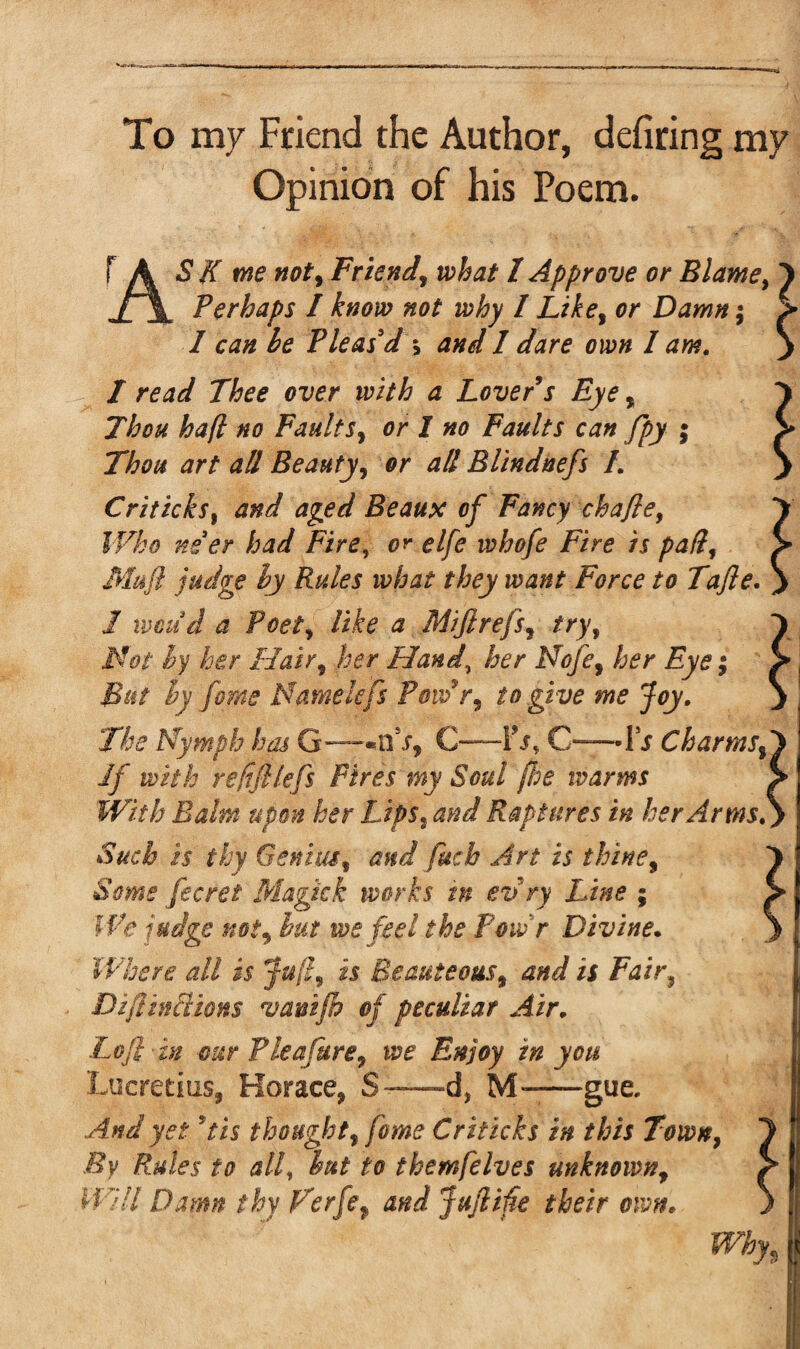 To my Friend the Author, deſiring my
Opinion of his Poem.
ASK me not, Friend, what I Approve or Blame,
Perhaps I know not why I Like, or Damn;
I can be Pleas'd; and I dare own I am.
I read Thee over with a Lover's Eye,
Thou haſt no Faults, or I no Faults can ſpy;
Thou art all Beauty, or all Blindneſs I.
Criticks, and aged Beaux of Fancy chaſte,
Who ne'er had Fire, or elſe whoſe Fire is paſt,
Muſt judge by Rules what they want Force to Taſte.
I wou'd a Poet, like a Miſtreſs, try,
Not by her Hair, her Hand, her Noſe, her Eye;
But by ſome Nameleſs Pow'r, to give me Joy.
The Nymph has G——n's, C——l's, C——l's Charms,
If with reſiſtleſs Fires my Soul ſhe warms
With Balm upon her Lips, and Raptures in her Arms.
Such is thy Genius, and ſuch Art is thine,
Some ſecret Magick works in ev'ry Line;
We judge not, but we feel the Pow'r Divine.
Where all is Juſt, is Beauteous, and is Fair,
Diſtinctions vaniſh of peculiar Air.
Loſt in our Pleaſure, we Enjoy in you
Lucretius, Horace, S——d, M——gue.
And yet 'tis thought, ſome Criticks in this Town,
By Rules to all, but to themſelves unknown,
Will Damn thy Verſe, and Juſtifie their own.
Why,